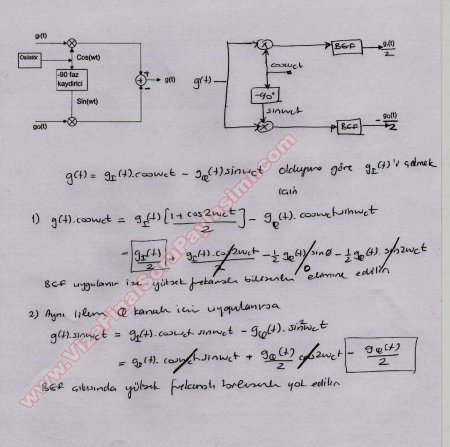 gi(t)
Osilatör
Cos(wt)
-90 faz
kaydirici
Sin(wt)
g(t)
gq(t)
g(t)
coswct
-90°
sinwct
BGF
gI(t)/2
BGF
- gQ(t)/2
g(t) = gI(t).coswct - gQ(t) sinwct olduğuna göre gI(t)'yi çekmek
için
1) g(t).coswct = gI(t) [1 + cos2wct / 2] - gQ(t). coswct sinwct
= gI(t)/2 + gI(t).cos2wct/2 - 1/2 gQ(t) sin0 - 1/2 gQ(t). sin2wct
0
BGF uygulanır ise yüksek frekanslı bileşenler elimine edilir
2) Aynı işlem Q kanalı için uygulanırsa
g(t).sinwct = gI(t).coswct sinwct - gQ(t).sin²wct
= gI(t). coswct sinwct + gQ(t)/2 cos2wct - gQ(t)/2
BGF çıkışında yüksek frekanslı bileşenler yok edilir
www.VizeFinalSoruPaylasimi.com